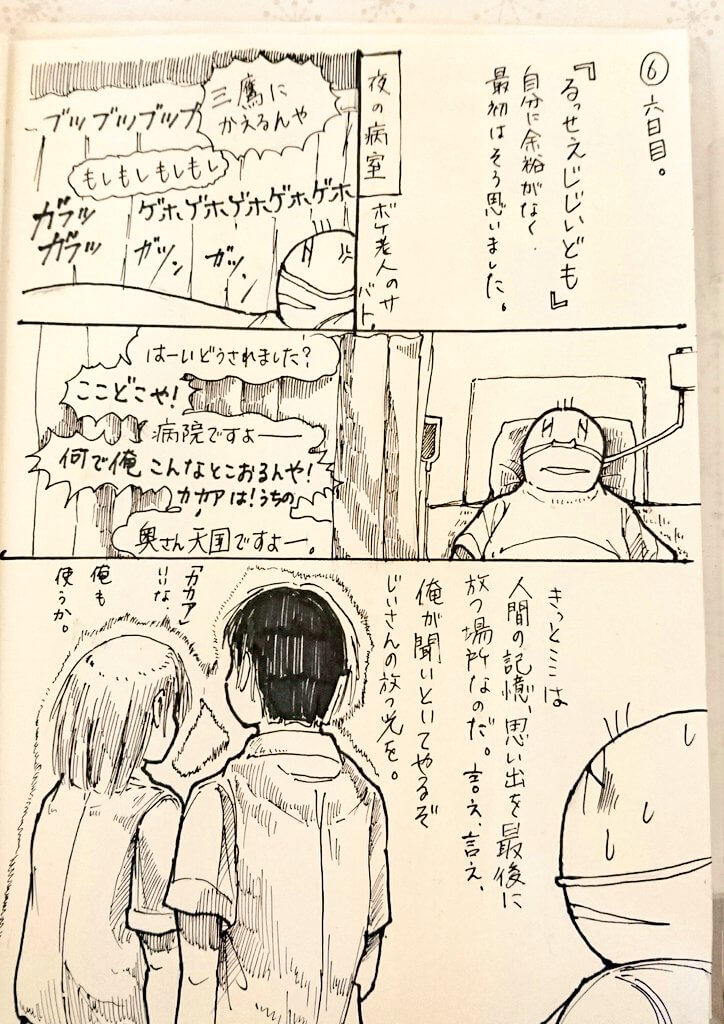 ⑥ 六日目。
『るっせえじじいども』
自分に余裕がなく、
最初はそう思いました。
夜の病室
ボケ老人のサバト。
三鷹に
かえるんや
ブツッブツッブツッ
もしもしもしもし
ゲホゲホゲホゲホゲホ
ガラッ
ガラッ
ガツン
ガツン
はーいどうされました?
ここどこや!
病院ですよ――
何で俺こんなとこおるんや!
カカアは!うちの
奥さん天国ですよー。
きっとここは
人間の記憶、思い出を最後に
放つ場所なのだ。言え、言え、
俺が聞いといてやるぞ
じいさんの放つ光を。
「カカア」
いいな。
俺も
使うか。